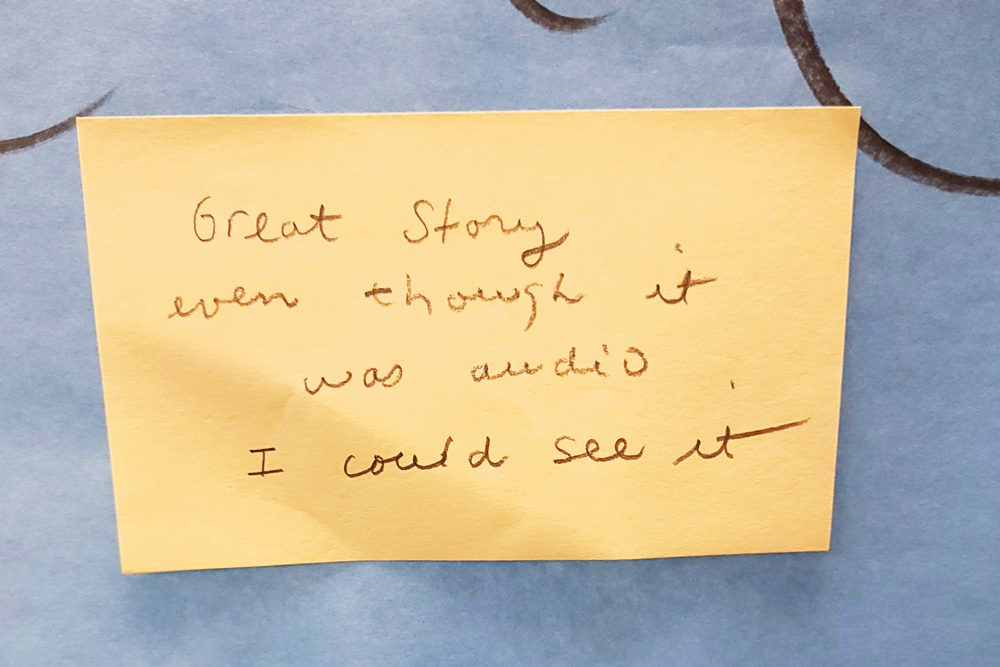 Great Story
even though it
was audio
I could see it